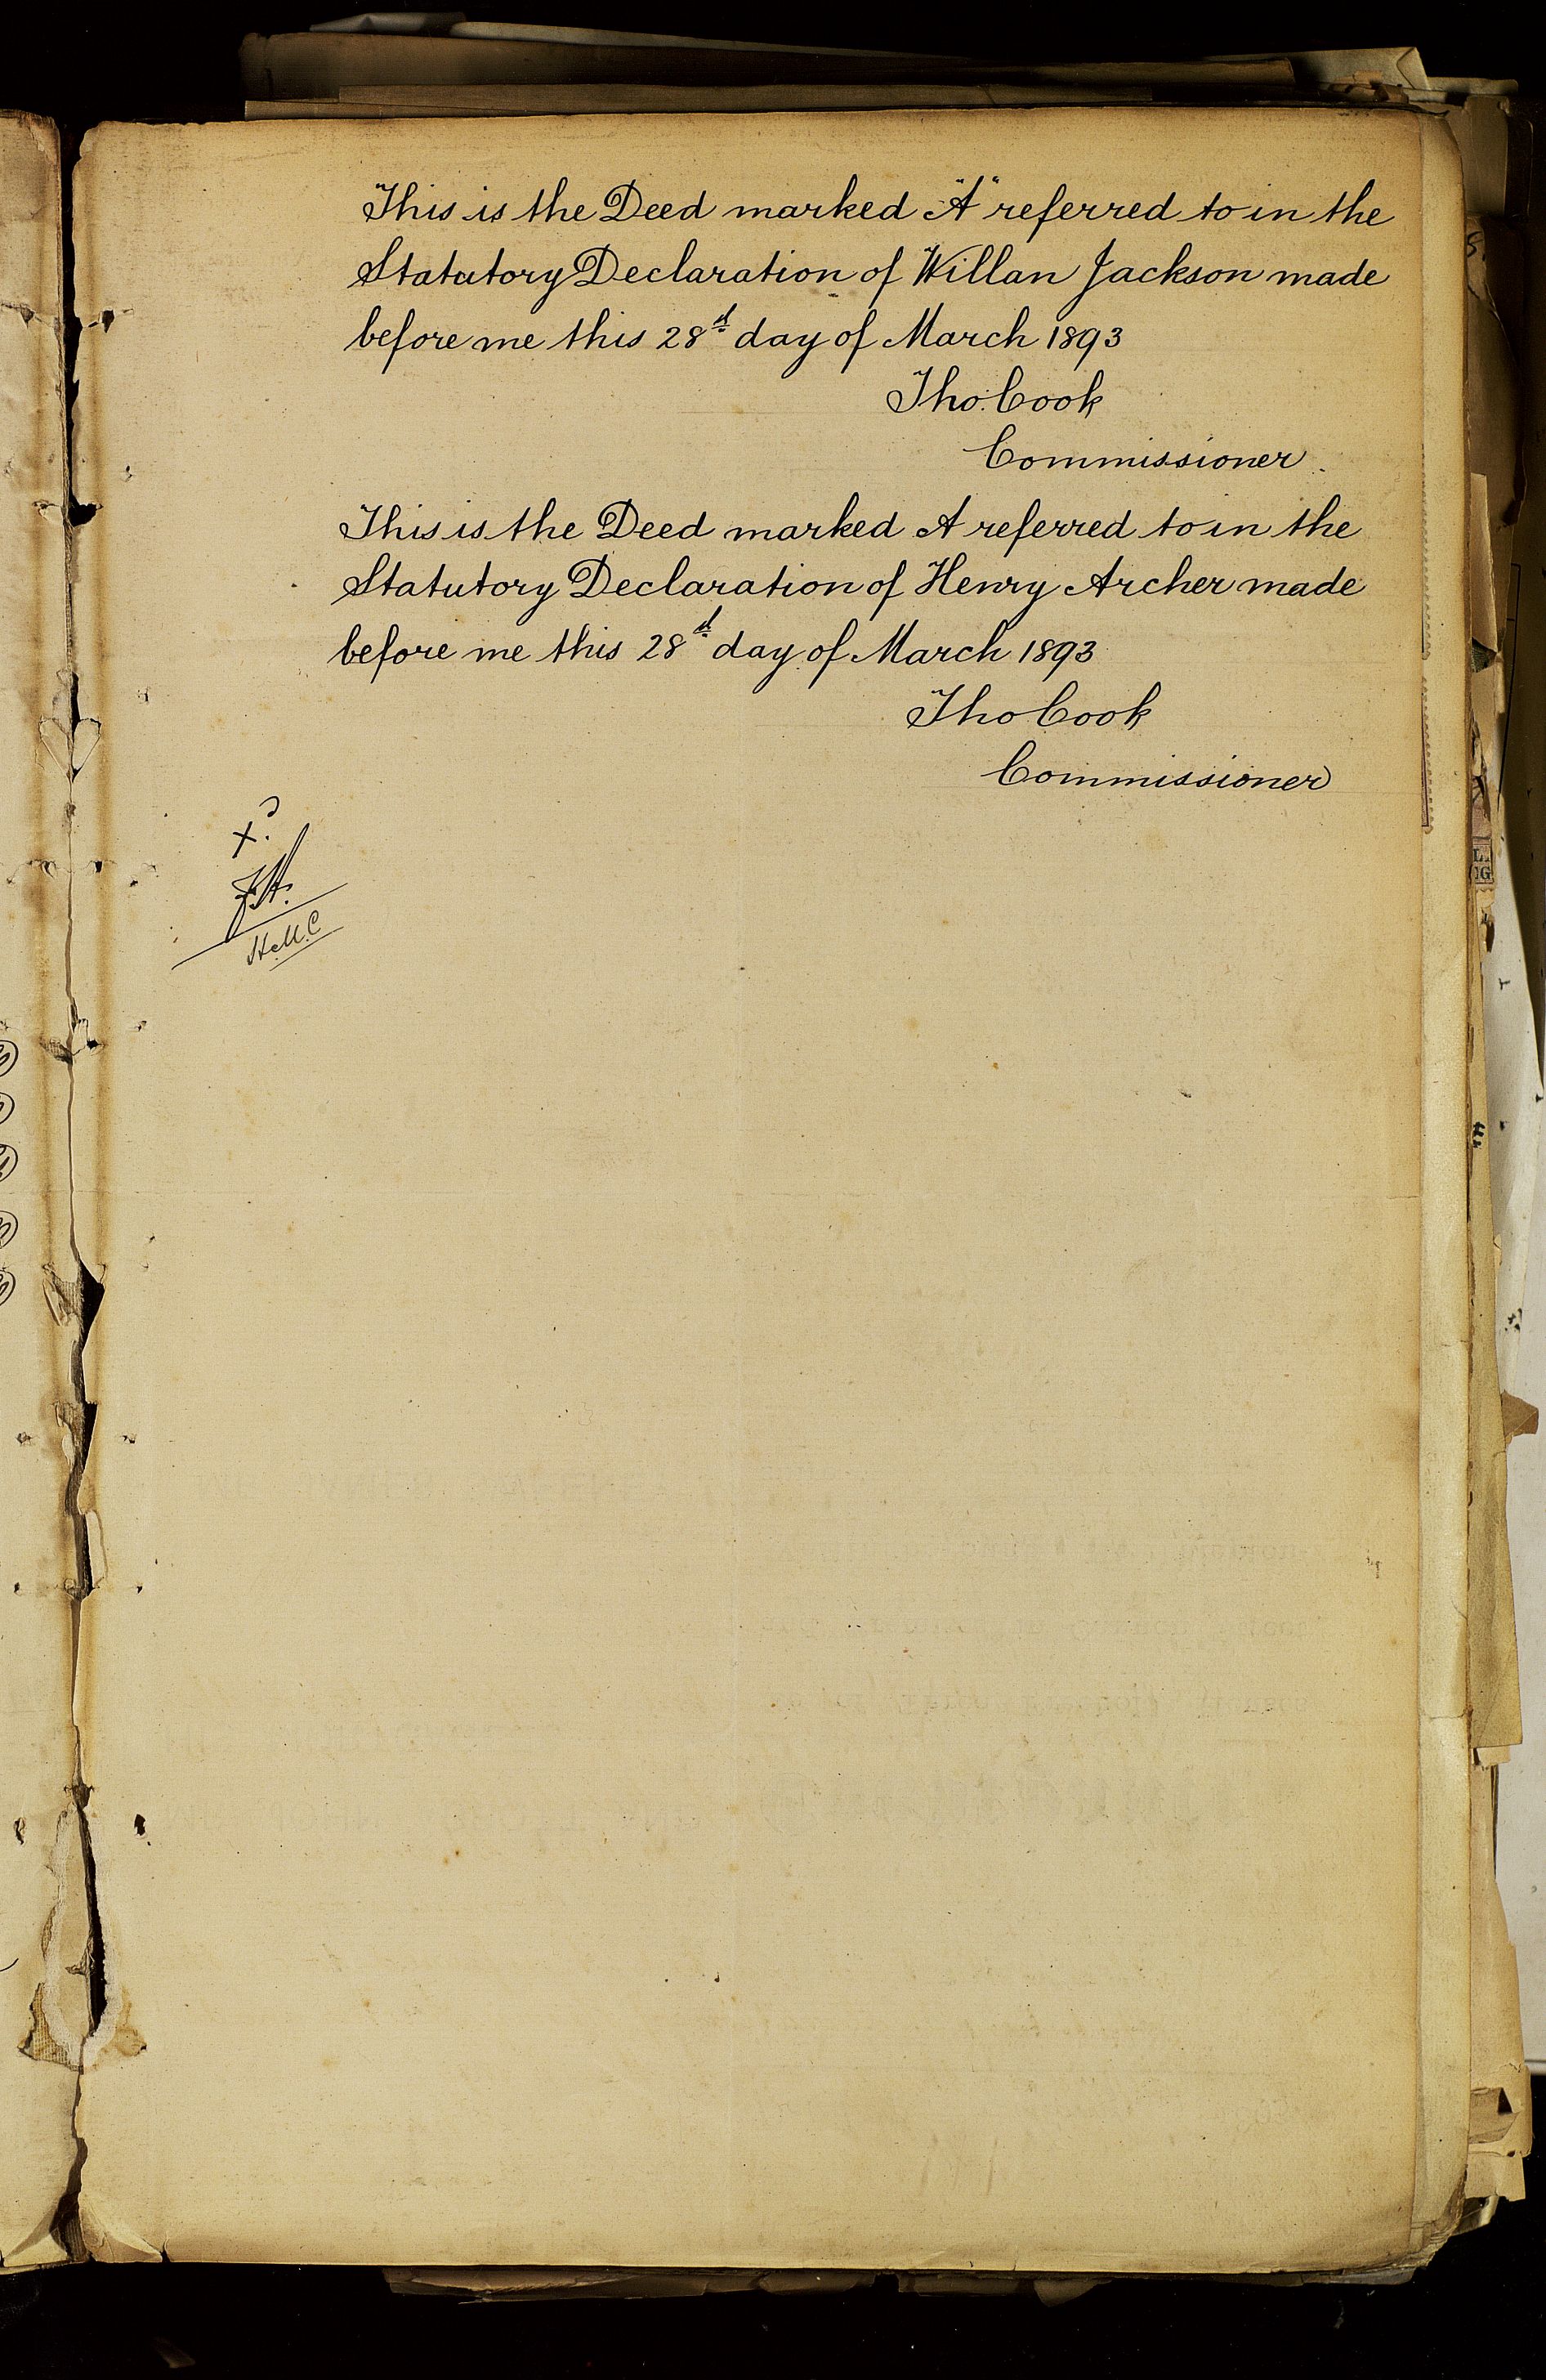 This is the Deed marked "A" referred to in the
Statutory Declaration of Willan Jackson made
before me this 28th day of March 1893
Tho. Cook
Commissioner.
This is the Deed marked A referred to in the
Statutory Declaration of Henry Archer made
before me this 28th day of March 1893
Tho Cook
Commissioner
H.M.C